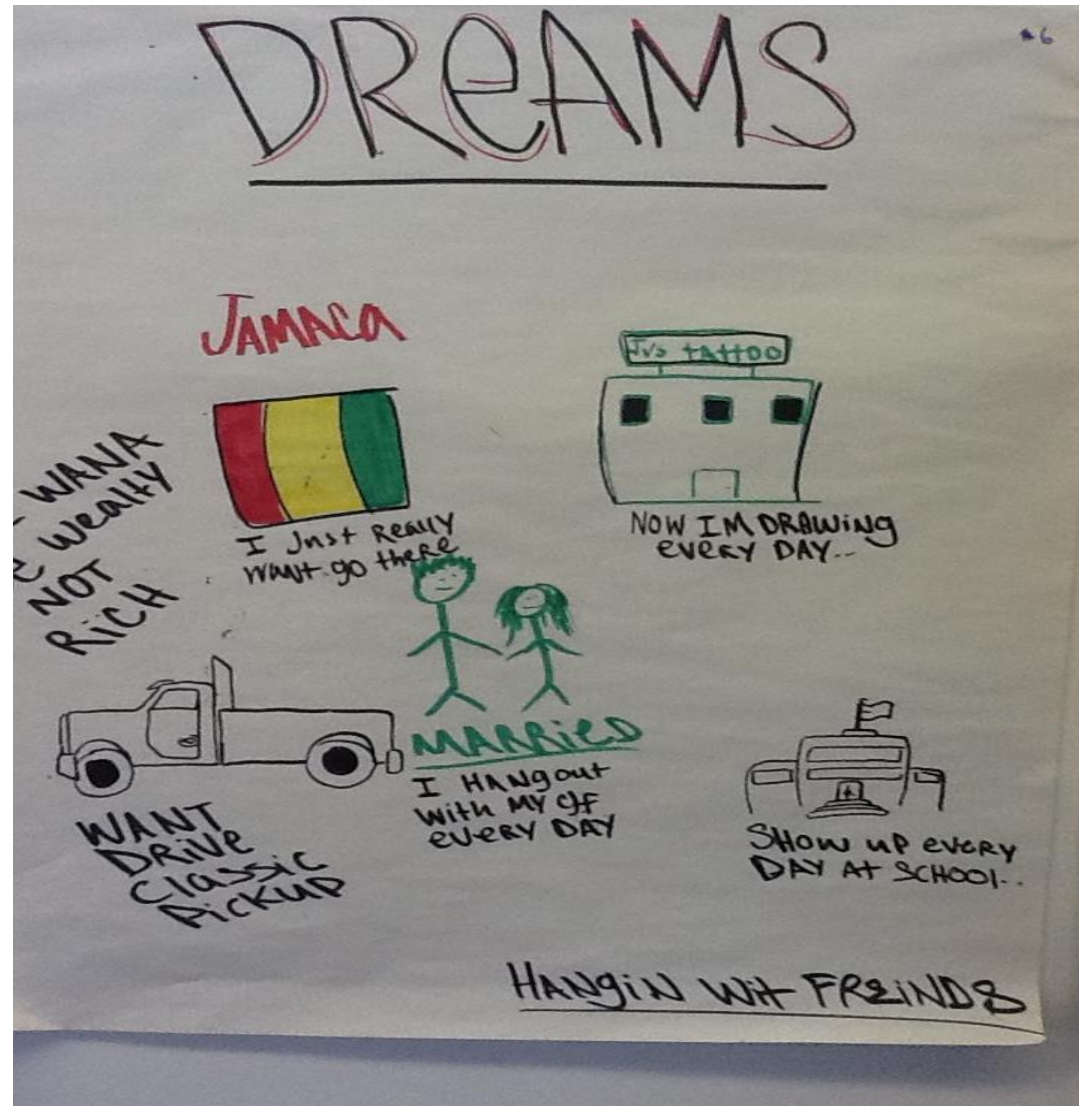 DReAMS
*6
JAMACA
I Just Really
want go there
JV's tAttOO
NOW IM DRAWing
eveRY DAY...
WANA
Wealty
NOT
RiCH
MARRieD
I HANg out
With MY gf
eveRY DAY
WANT
DRive
Classic
Pickup
SHOW uP eveRY
DAY At SCHOOl..
HANgiN Wit FReiNDS